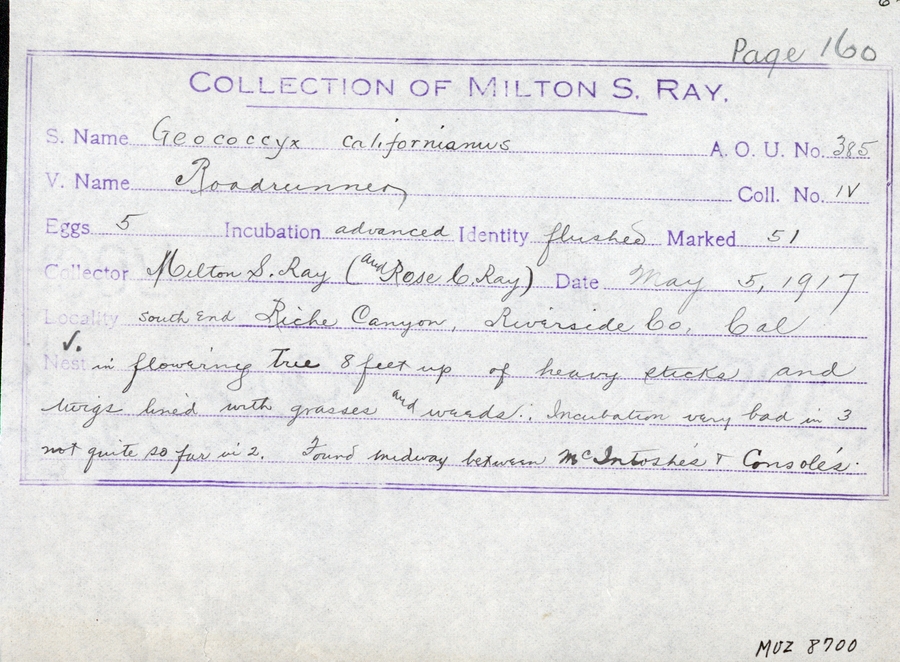 Page 160
COLLECTION OF MILTON S. RAY.
S. Name Geococcyx californianus A. O. U. No. 385
V. Name Roadrunner Coll. No. IV
Eggs 5 Incubation advanced Identity flushed Marked 51
Collector Milton S. Ray (and Rose C. Ray) Date May 5, 1917
Locality South End Riche Canyon, Riverside Co. Cal
Nest in flowering Tree 8 feet up of heavy sticks and
twigs lined with grasses and weeds. Incubation very bad in 3
not quite so far in 2. Found midway between McIntoshes & Console's.
MVZ 8700